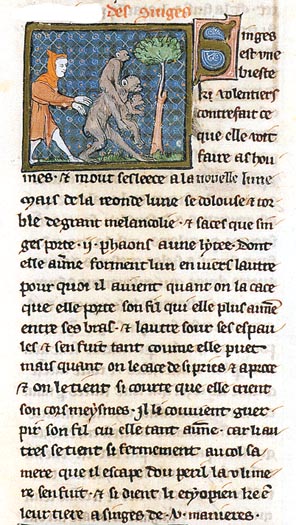 des singes
Singes
est vne
bieste
ki volentiers
contrefait ce
que elle voit
faire as hou
mes · ⁊ mout seslece a la nouelle lune
mais de la reonde lune se dolouse ⁊ tor
ble de grant melancolie · ⁊ saces que sin
ges porte · ij · phaons a vne lytee · dont
elle aime forment lun en uiers lautre
pour quoi il auient quant on la cace
que elle porte son fil qui elle plus aime
entre ses bras · ⁊ lautre sour ses espau
les ⁊ sen fuit tant come elle puet
mais quant on le cace de si pries ⁊ aproce
⁊ on le tient si courte que elle crient
son cors meysmes · Il li couuient guer
pir son fil cui elle tant aime · car li au
tres se tient si fermement au col sa
mere que il escape dou peril la v li me
re sen fuit · ⁊ si dient li etyopien ke ē
leur tiere a singes de · v · manieres ·